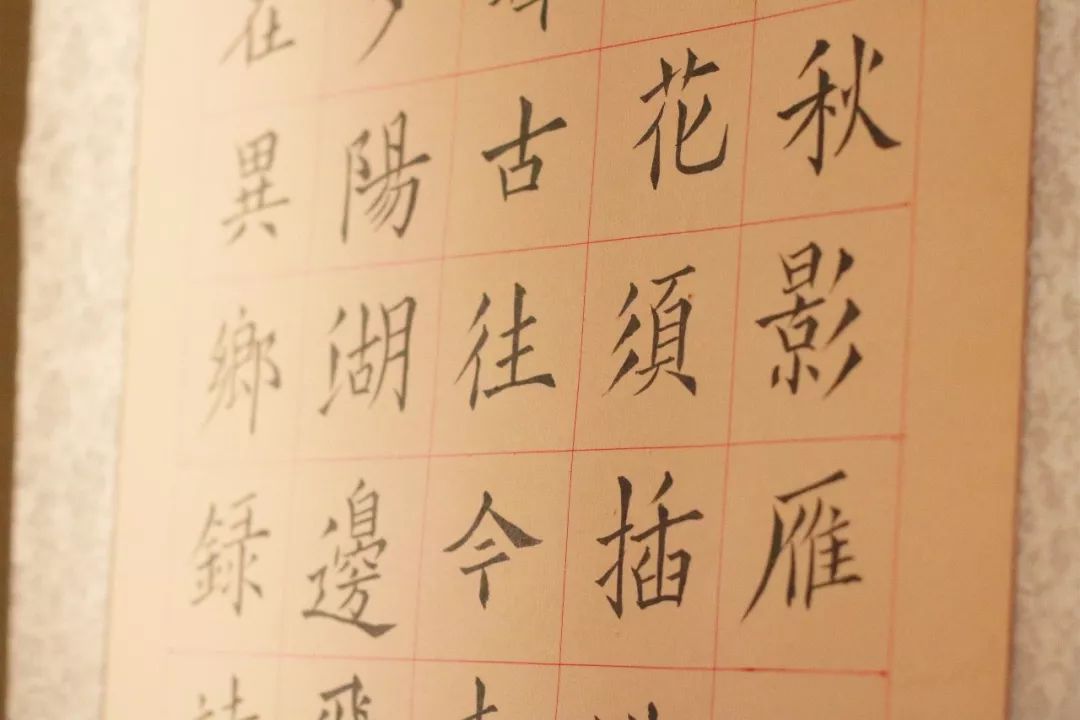 秋影雁
花須插
古往今
陽湖邊飛
在異鄉録